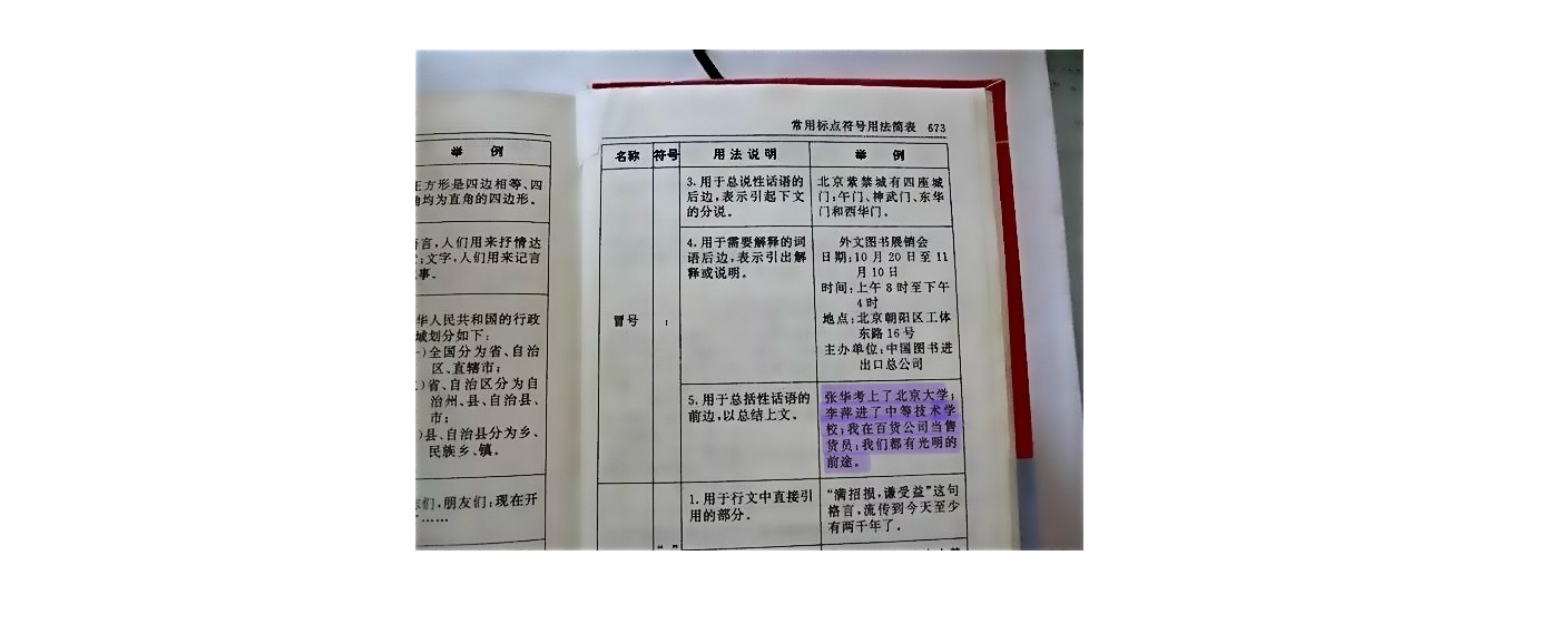 举 例
方形是四边相等、四
均为直角的四边形。
言,人们用来抒情达
;文字,人们用来记言
事。
华人民共和国的行政
域划分如下:
)全国分为省、自治
区、直辖市;
)省、自治区分为自
治州、县、自治县、
市;
)县、自治县分为乡、
民族乡、镇。
们,朋友们:现在开
……
常用标点符号用法简表 673
名称 符号 用法说明 举 例
3. 用于总说性话语的
后边,表示引起下文
的分说。
北京紫禁城有四座城
门:午门、神武门、东华
门和西华门。
冒号 :
4. 用于需要解释的词
语后边,表示引出解
释或说明。
外文图书展销会
日期:10月20日至11
月10日
时间:上午8时至下午
4时
地点:北京朝阳区工体
东路16号
主办单位:中国图书进
出口总公司
5. 用于总括性话语的
前边,以总结上文。
张华考上了北京大学;
李萍进了中等技术学
校;我在百货公司当售
货员:我们都有光明的
前途。
1. 用于行文中直接引
用的部分。
“满招损,谦受益”这句
格言,流传到今天至少
有两千年了。
“ ”